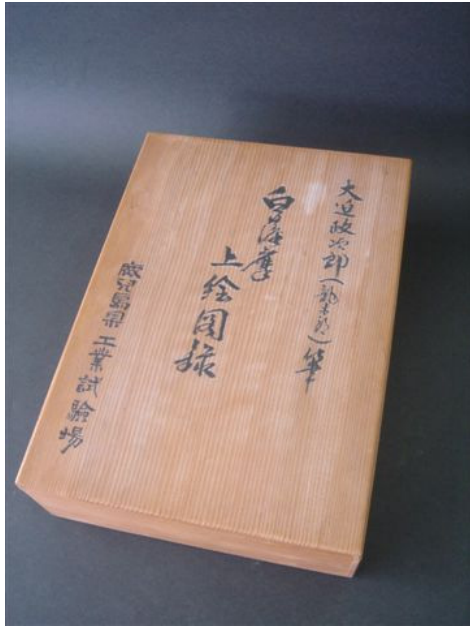 大迫政次郎（龍吉郎）筆
白薩摩
上絵図録
鹿児島県工業試験場